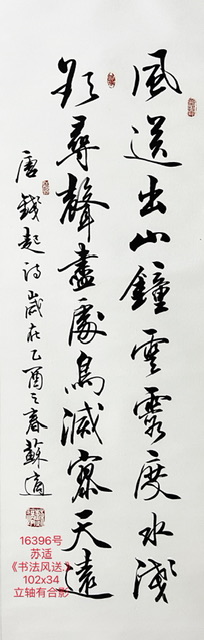 風送出山鐘雲霞度水淺
欲尋聲盡處鳥滅寥天遠
唐錢起詩歲在乙酉之春蘇適
16396号
苏适
《书法风送.》
102x34
立轴有合影